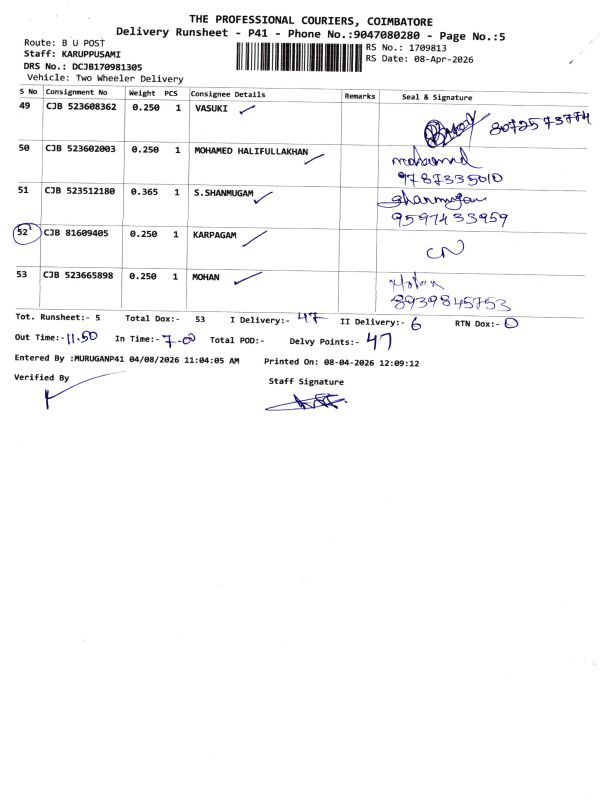 THE PROFESSIONAL COURIERS, COIMBATORE
Delivery Runsheet - P41 - Phone No.:9047080280 - Page No.:5
Route: B U POST
RS No.: 1709813
Staff: KARUPPUSAMI
RS Date: 08-Apr-2026
DRS No.: DCJB170981305
Vehicle: Two Wheeler Delivery
S No Consignment No Weight PCS Consignee Details Remarks Seal & Signature
49 CJB 523608362 0.250 1 VASUKI 8072573774
50 CJB 523602003 0.250 1 MOHAMED HALIFULLAKHAN mohamed
9787335010
51 CJB 523512180 0.365 1 S.SHANMUGAM Shanmugam
9597433959
52 CJB 81609405 0.250 1 KARPAGAM CN
53 CJB 523665898 0.250 1 MOHAN Mohan
8939845753
Tot. Runsheet:- 5 Total Dox:- 53 I Delivery:- 47 II Delivery:- 6 RTN Dox:- 0
Out Time:- 11.50 In Time:- 7.00 Total POD:- Delvy Points:- 47
Entered By :MURUGANP41 04/08/2026 11:04:05 AM Printed On: 08-04-2026 12:09:12
Verified By Staff Signature